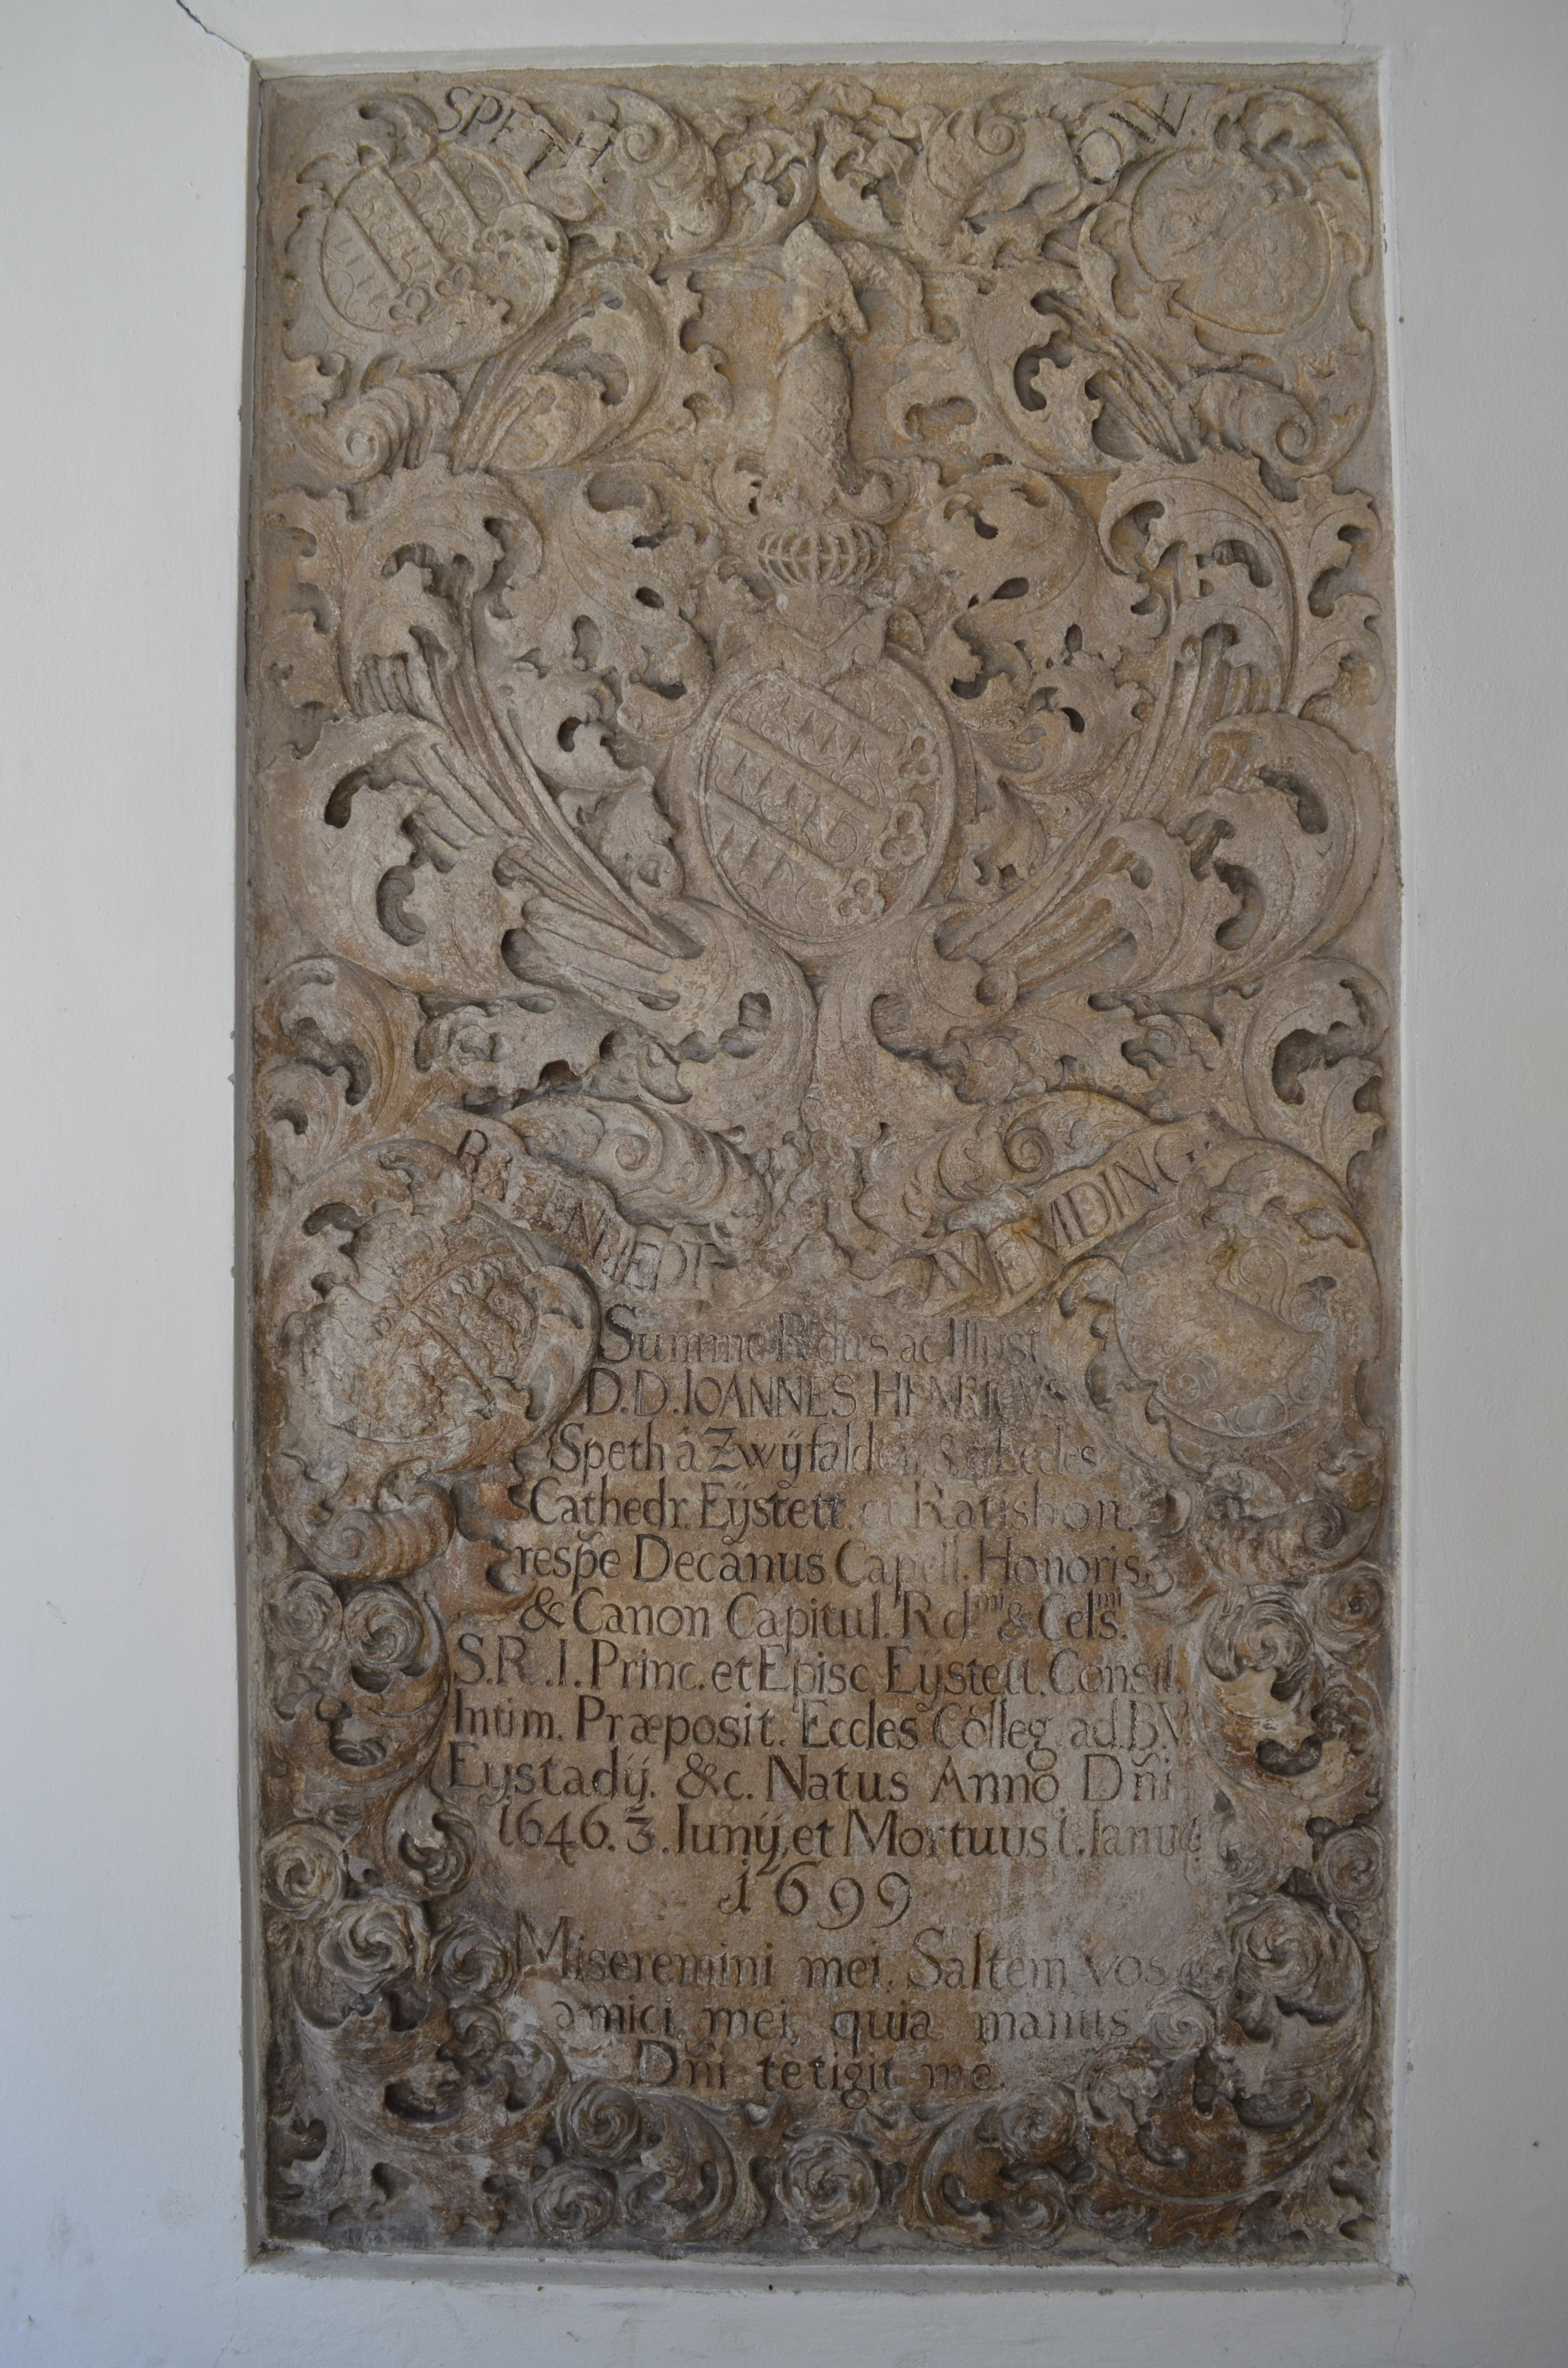 SPETH
OW
WEMDING
Summe Rdus ac Illust
D.D. IOANNES HENRICVS
Speth à Zwÿfalden Eccles
Cathedr. Eÿstett. et Ratisbon.
respe Decanus Capell. Honoris,
& Canon Capitul. Rdmi & Celsmi
S.R.I. Princ. et Episc Eÿstett. Consil.
Intim. Præposit. Eccles Colleg. ad B.V
Eÿstadÿ. &c. Natus Anno Dñi
1646. 3. Iunÿ, et Mortuus 1. Ianuar
1699
Miseremini mei, Saltem vos
amici mei, quia manus
Dñi tetigit me.